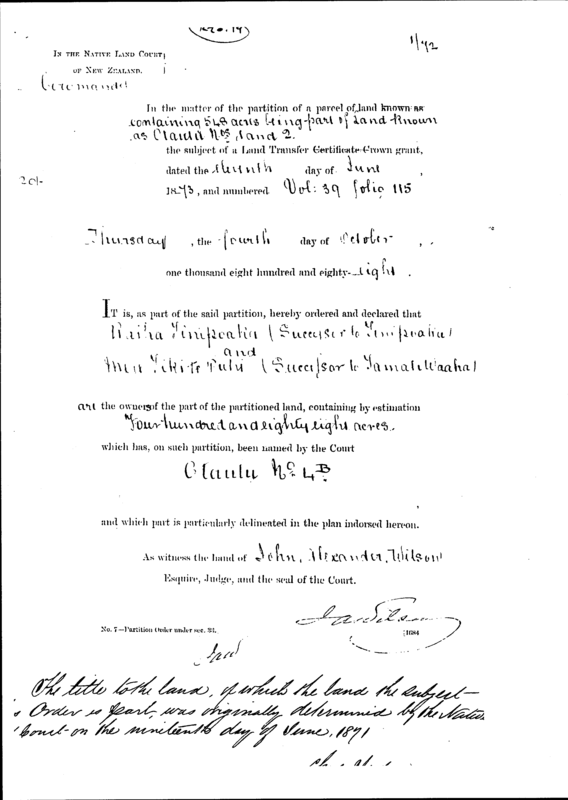 No. 19
1/92
IN THE NATIVE LAND COURT
OF NEW ZEALAND.
Coromandel
In the matter of the partition of a parcel of land known as
containing 548 acres being part of land known
as Otautu Nos 1 and 2.
the subject of a Land Transfer Certificate Crown grant,
dated the day of June
1873, and numbered Vol: 39 folio 115
20/-
Thursday, the fourth day of October,
one thousand eight hundred and eighty-eight.
IT is, as part of the said partition, hereby ordered and declared that
(Successor to
and
(Successor to
are the owners of the part of the partitioned land, containing by estimation
Four hundred and eighty eight acres.
which has, on such partition, been named by the Court
Otautu No 4B
and which part is particularly delineated in the plan indorsed hereon.
As witness the hand of John, Alexander, Wilson
Esquire, Judge, and the seal of the Court.
No. 7—Partition Order under sec. 33.
J A Wilson
1684
The title to the land, of which the land the subject
Order is part, was originally determined by the Native
Court on the nineteenth day of June, 1871